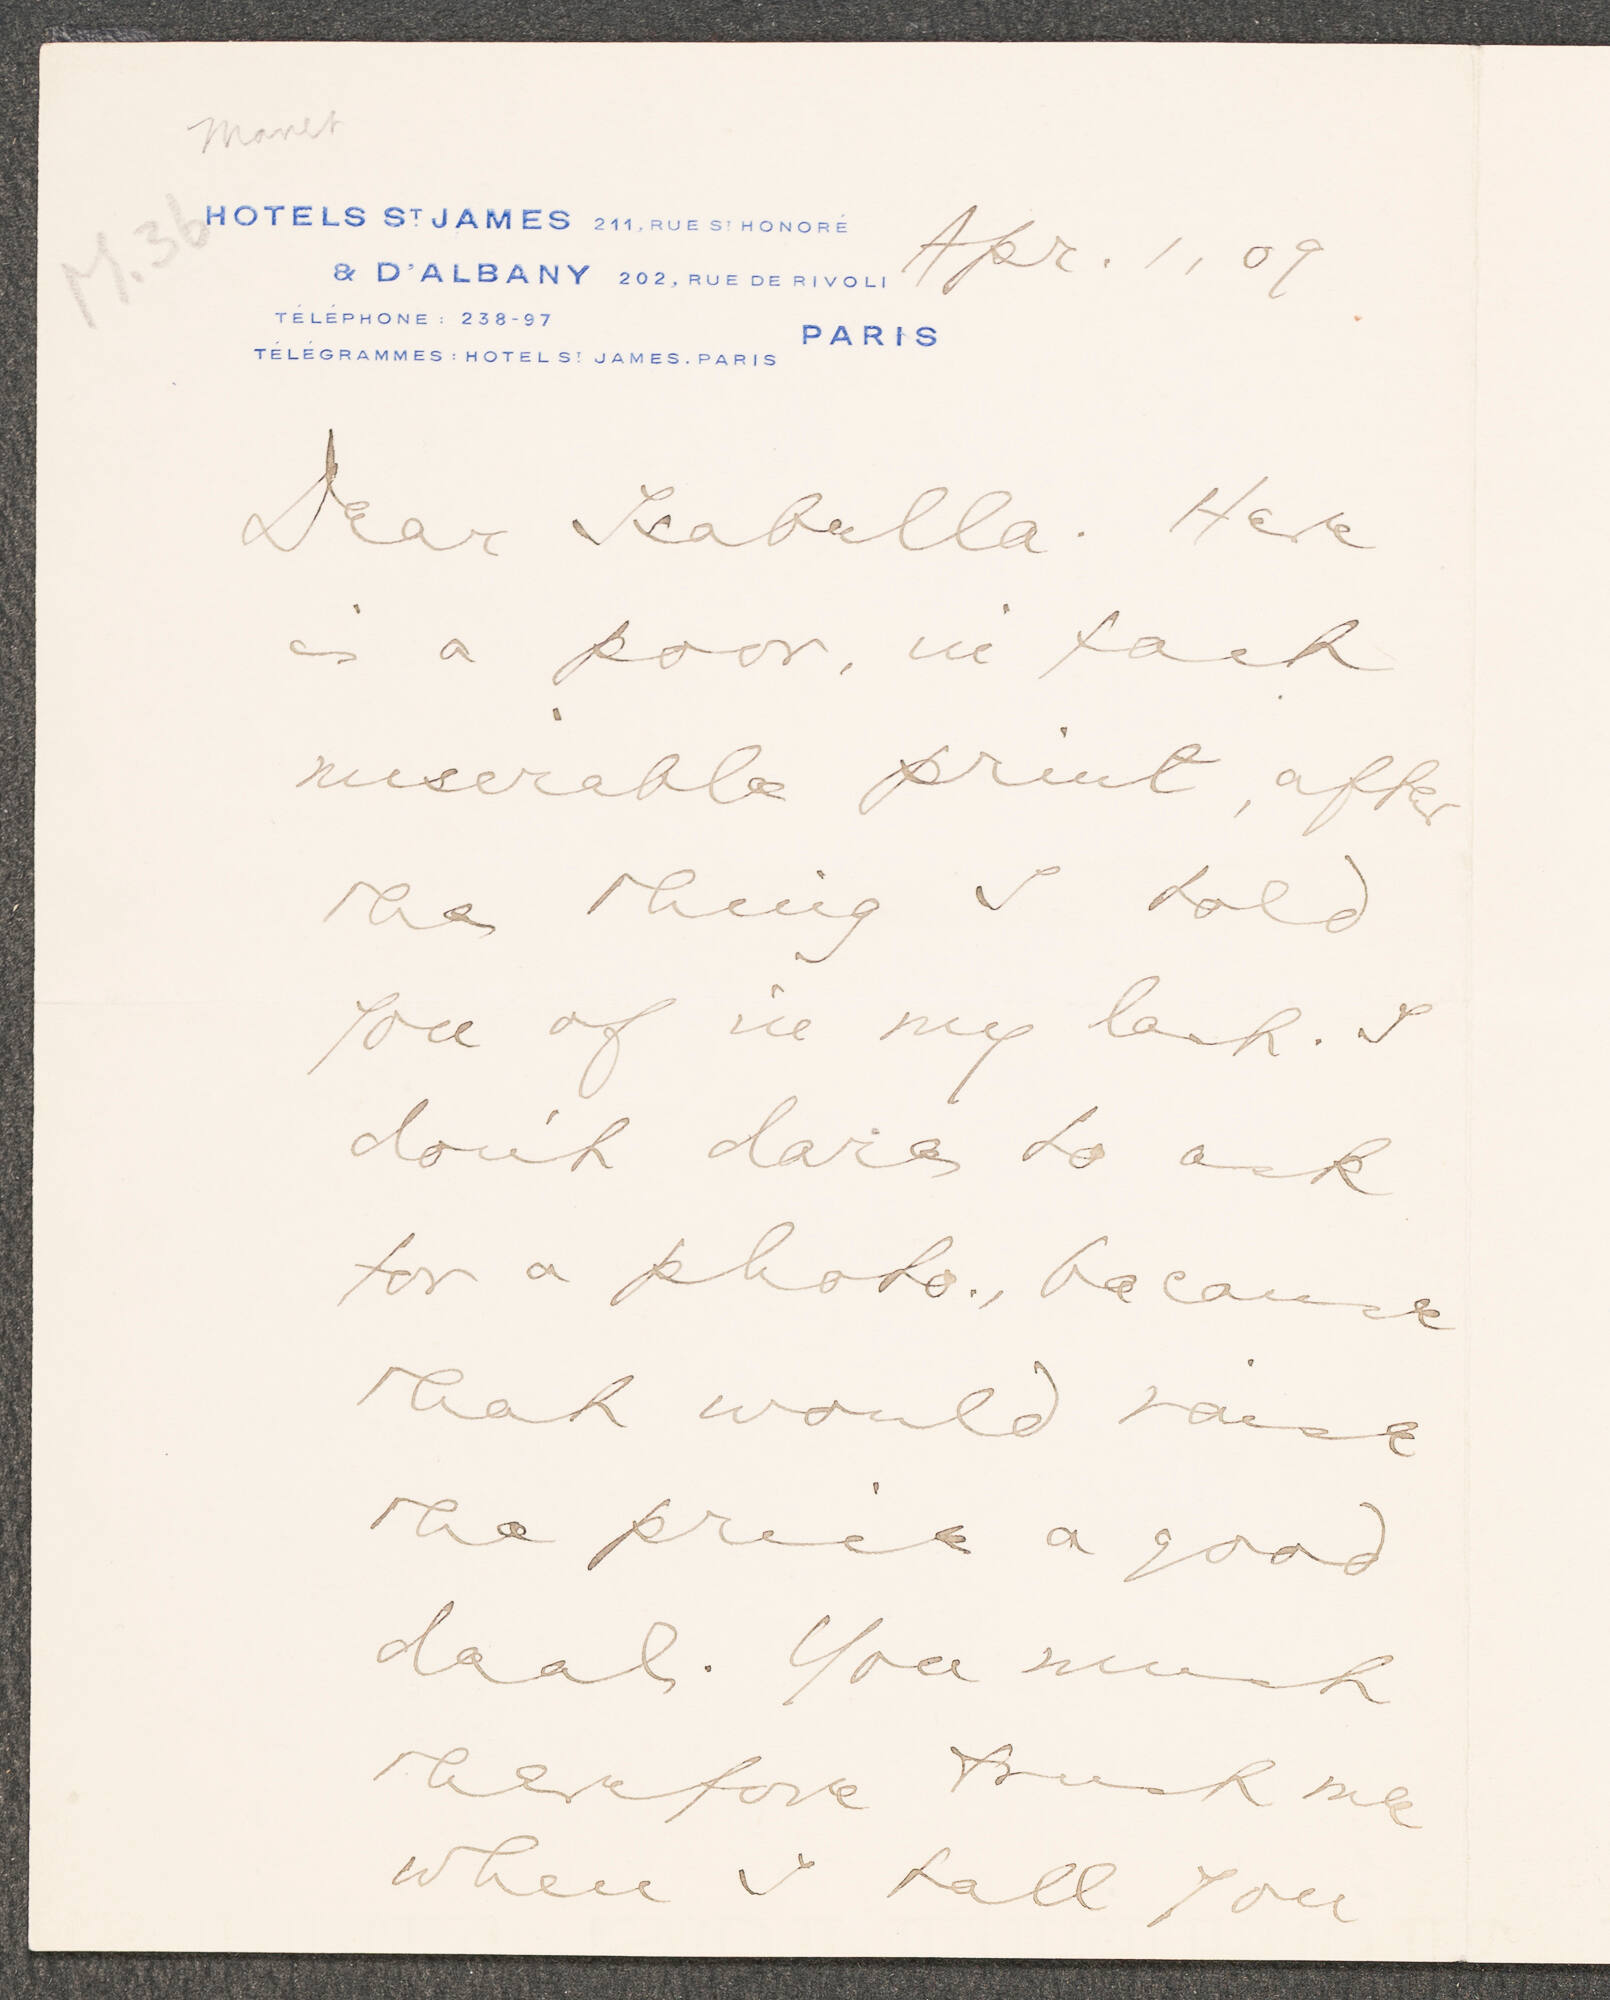 Manet
M.36
HOTELS ST JAMES 211, RUE ST HONORÉ
& D'ALBANY 202, RUE DE RIVOLI
TÉLÉPHONE : 238-97
TÉLÉGRAMMES : HOTEL ST JAMES. PARIS
PARIS
Apr. 1, 09
Dear Isabella. Here
is a poor, in fact
miserable print, after
the thing I told
you of in my last. I
don't dare to ask
for a photo., because
that would raise
the price a good
deal. You must
therefore trust me
when I tell you